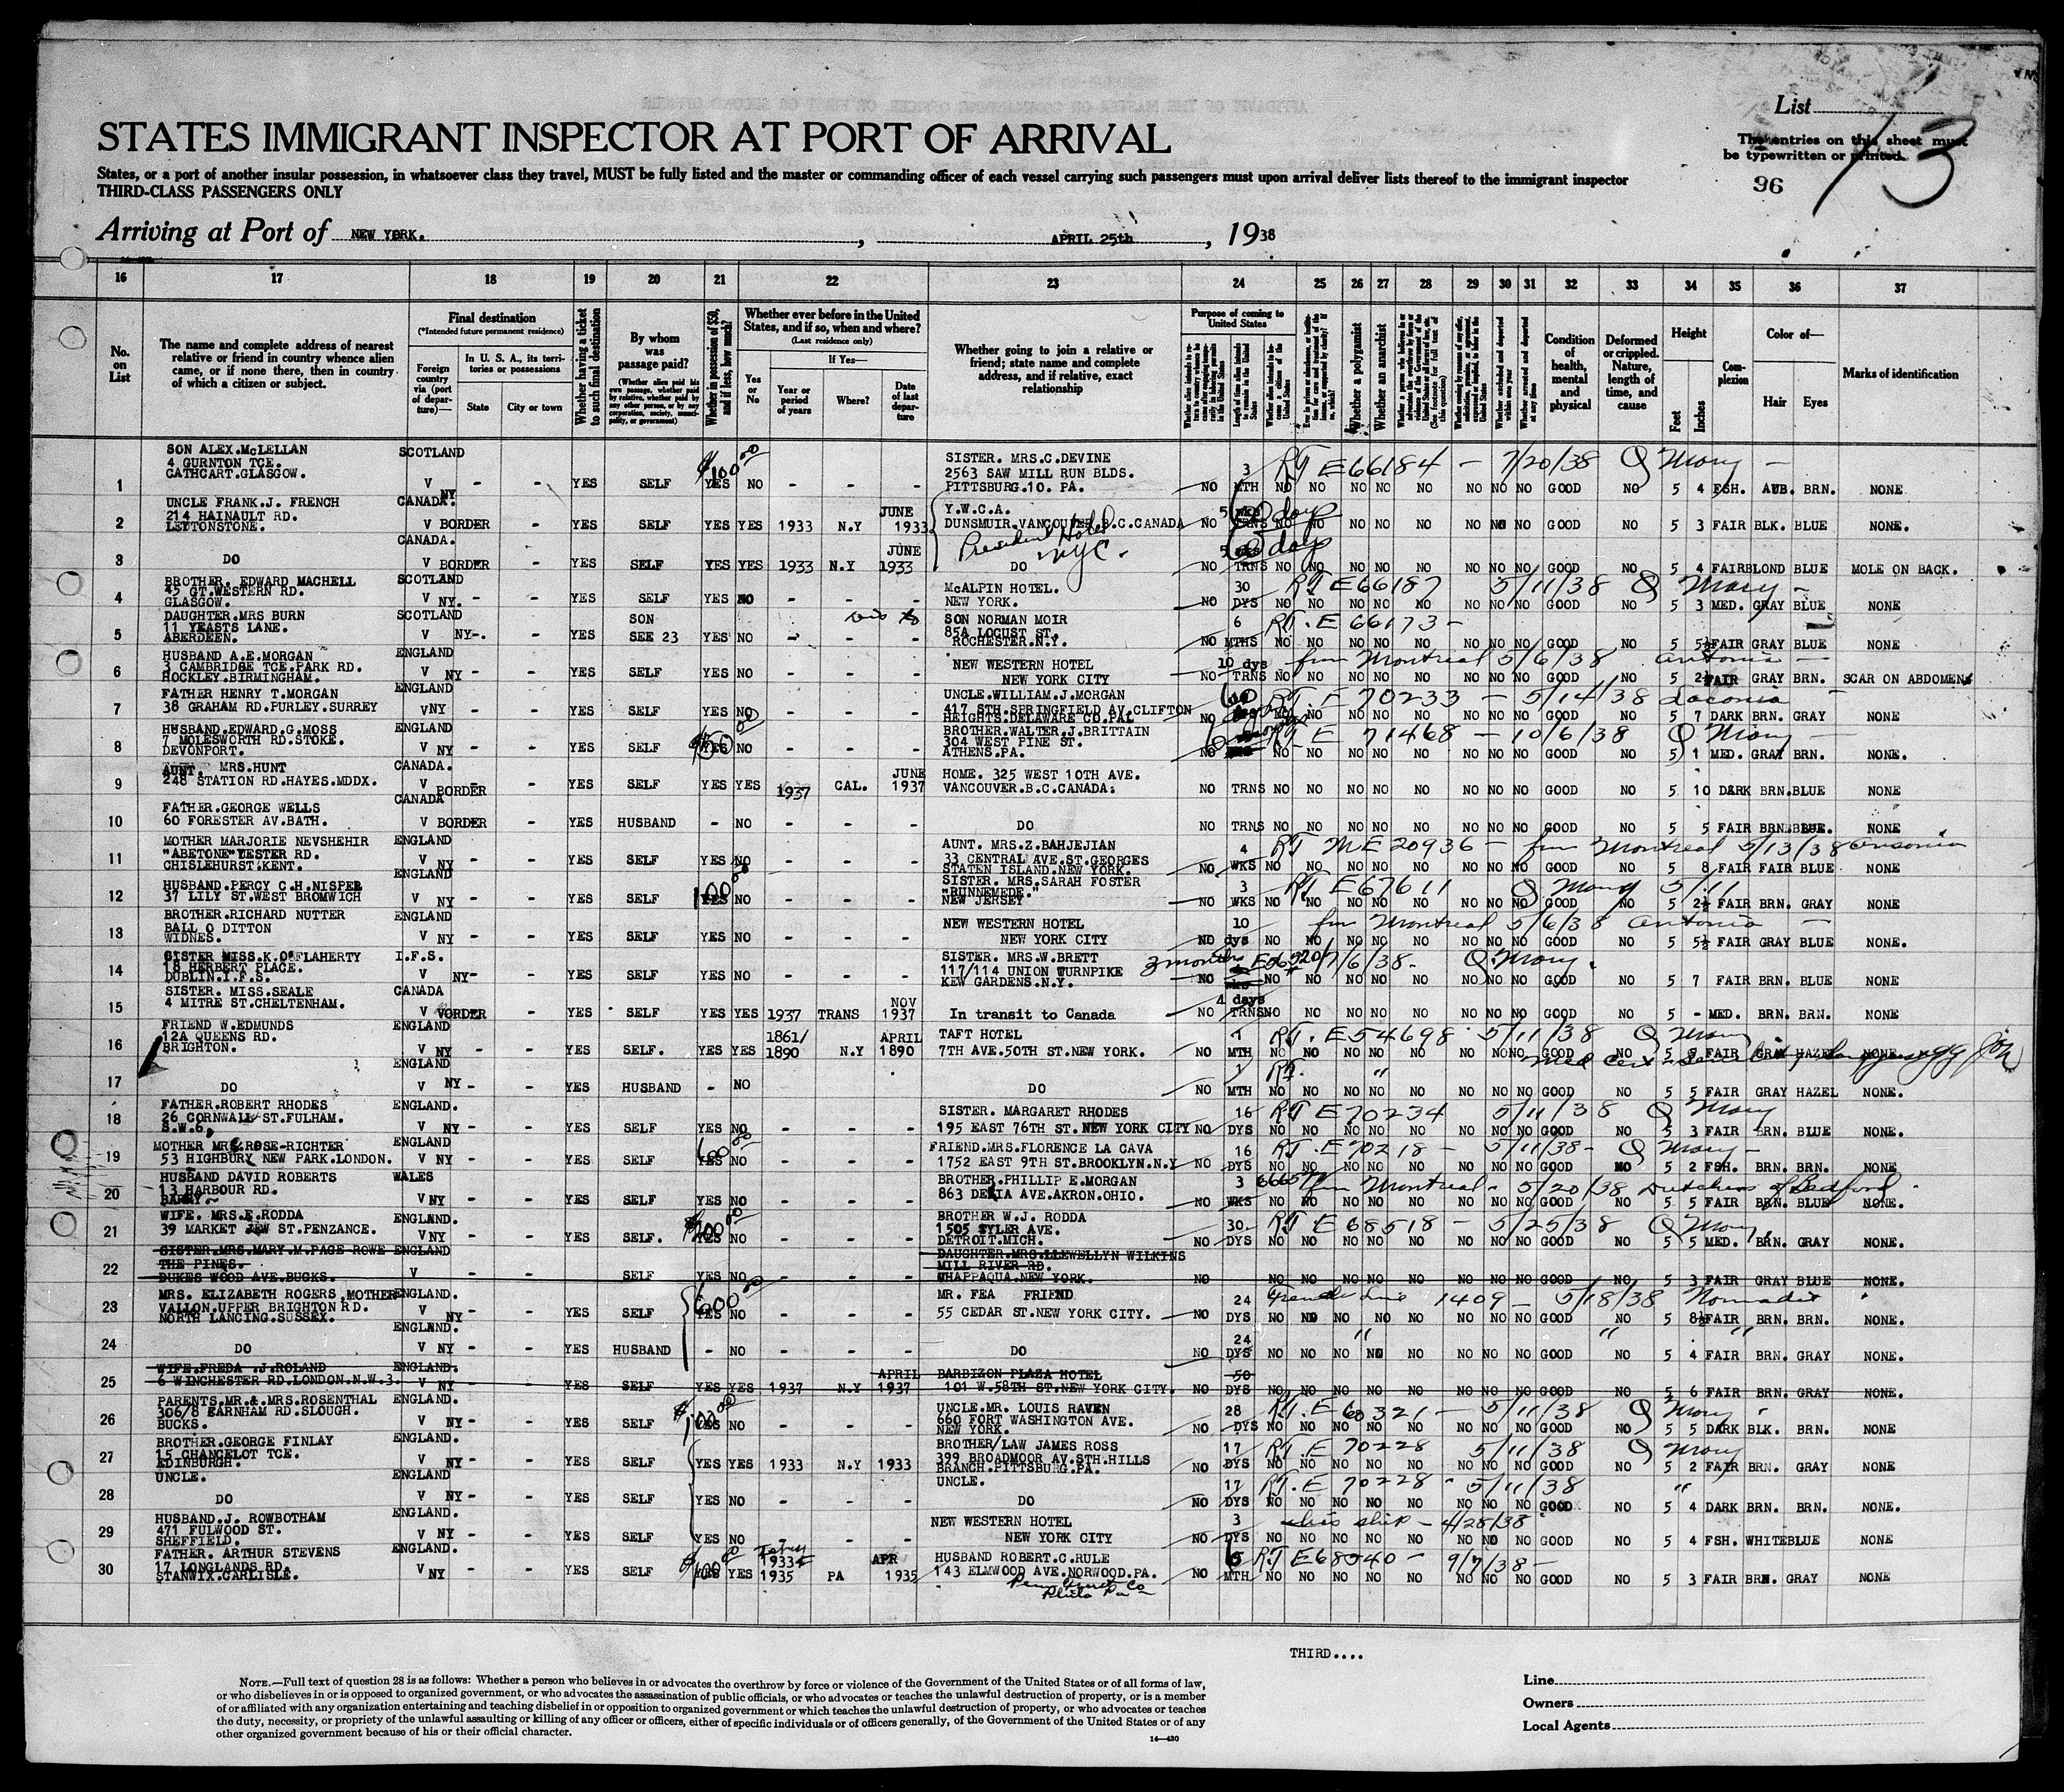 List
STATES IMMIGRANT INSPECTOR AT PORT OF ARRIVAL
The entries on this sheet must
be typewritten or printed.
States, or a port of another insular possession, in whatsoever class they travel, MUST be fully listed and the master or commanding officer of each vessel carrying such passengers must upon arrival deliver lists thereof to the immigrant inspector
THIRD-CLASS PASSENGERS ONLY
96
73
Arriving at Port of NEW YORK. , APRIL 25th , 1938
16 17 18 19 20 21 22 23 24 25 26 27 28 29 30 31 32 33 34 35 36 37
No. on List
The name and complete address of nearest relative or friend in country whence alien came, or if none there, then in country of which a citizen or subject.
Final destination
(*Intended future permanent residence)
Foreign country via (port of departure)—
In U. S. A., its territories or possessions
State
City or town
Whether having a ticket to such final destination
By whom was passage paid?
(Whether alien paid his own passage, whether paid by relative, whether paid by any other person, or by any corporation, society, municipality, or government)
Whether in possession of $50, and if less, how much?
Whether ever before in the United States, and if so, when and where?
(Last residence only)
Yes or No
If Yes—
Year or period of years
Where?
Date of last departure
Whether going to join a relative or friend; state name and complete address, and if relative, exact relationship
Purpose of coming to United States
Length of time alien intends to remain in the United States
Whether a polygamist
Whether an anarchist
Condition of health, mental and physical
Deformed or crippled. Nature, length of time, and cause
Height
Feet
Inches
Complexion
Color of—
Hair
Eyes
Marks of identification
1 SON ALEX.McLELLAN 4 GURNTON TCE. CATHCART.GLASGOW. SCOTLAND V - - YES SELF $100 00 YES NO - - - SISTER. MRS.C.DEVINE 2563 SAW MILL RUN BLDS. PITTSBURG.10. PA. NO 3 MTH RT E66184 - 7/20/38 Q Mary - NO NO NO NO NO NO NO NO GOOD NO 5 4 FSH. AUB. BRN. NONE
2 UNCLE FRANK.J. FRENCH 214 HAINAULT RD. LEYTONSTONE. CANADA. NY V BORDER - YES SELF YES YES 1933 N.Y JUNE 1933 Y.W.C.A. DUNSMUIR.VANCOUVER.B.C.CANADA President Hotel NYC. NO TRNS 60 days NO NO NO NO NO NO NO NO GOOD NO 5 3 FAIR BLK. BLUE NONE.
3 DO CANADA. V BORDER - YES SELF YES YES 1933 N.Y JUNE 1933 DO NO TRNS 60 days NO NO NO NO NO NO NO NO GOOD NO 5 4 FAIR BLOND BLUE MOLE ON BACK.
4 BROTHER. EDWARD MACHELL 45 GT.WESTERN RD. GLASGOW. SCOTLAND V NY. - YES SELF YES NO - - - McALPIN HOTEL. NEW YORK. NO 30 DYS RT E66187 5/11/38 Q Mary - NO NO NO NO NO NO NO NO GOOD NO 5 3 MED. GRAY BLUE NONE
5 DAUGHTER.MRS BURN 11 YEASTS LANE. ABERDEEN. SCOTLAND V NY-. - YES SON SEE 23 YES NO - - - SON NORMAN MOIR 85A LOCUST ST. ROCHESTER.N.Y. NO 6 MTHS RT. E 66173 - NO NO NO NO NO NO NO NO GOOD NO 5 5½ FAIR GRAY BLUE NONE
6 HUSBAND A.E.MORGAN 3 CAMBRIDGE TCE.PARK RD. HOCKLEY.BIRMINGHAM. ENGLAND V NY - - YES SELF YES NO - - - NEW WESTERN HOTEL NEW YORK CITY NO 10 dys TRNS from Montreal 5/6/38 Antonia - NO NO NO NO NO NO NO NO GOOD NO 5 2½ FAIR GRAY BRN. SCAR ON ABDOMEN
7 FATHER HENRY T.MORGAN 38 GRAHAM RD.PURLEY.SURREY ENGLAND VNY - - YES SELF YES NO - - - UNCLE.WILLIAM.J.MORGAN 417 STH.SPRINGFIELD AV.CLIFTON HEIGHTS.DELAWARE CO.PA. NO 60 days RT. E 70233 - 5/14/38 Laconia NO NO NO NO NO NO NO GOOD NO 5 7 DARK BRN. GRAY NONE
8 HUSBAND.EDWARD.G.MOSS 7 MOLESWORTH RD.STOKE. DEVONPORT. ENGLAND V NY - - YES SELF $50 00 YES NO - - - BROTHER.WALTER.J.BRITTAIN 304 WEST PINE ST. ATHENS.PA. NO 6 months RT E 71468 - 10/6/38 Q Mary - NO NO NO NO NO NO NO NO GOOD NO 5 1 MED. GRAY BRN. NONE.
9 AUNT, MRS.HUNT 248 STATION RD.HAYES.MDDX. CANADA. V BORDER - YES SELF YES YES 1937 CAL. JUNE 1937 HOME. 325 WEST 10TH AVE. VANCOUVER.B.C.CANADA. NO TRNS NO NO NO NO NO NO NO NO GOOD NO 5 10 DARK BRN.BLUE NONE
10 FATHER.GEORGE WELLS 60 FORESTER AV.BATH. CANADA V BORDER - YES HUSBAND - NO - - - DO NO TRNS NO NO NO NO NO NO NO NO GOOD NO 5 5 FAIR BRN.BLUE. NONE
11 MOTHER MARJORIE NEVSHEHIR "ABETONE"YESTER RD. CHISLEHURST.KENT. ENGLAND V NY - - YES SELF YES NO - - - AUNT. MRS.Z.BAHJEJIAN 33 CENTRAL AVE.ST.GEORGES STATEN ISLAND.NEW YORK. NO 4 WKS RT ME 20936 - from Montreal 5/13/38 NO NO NO NO NO NO NO NO GOOD NO 5 8 FAIR FAIR BLUE NONE
12 HUSBAND.PERCY C.H.NISPEL 37 LILY ST.WEST BROMWICH ENGLAND V NY - - YES SELF 100 00 YES NO - - - SISTER. MRS.SARAH FOSTER "RUNNEMEDE." NEW JERSEY NO 3 WKS RT E67611 Q Mary 5/11 NO NO NO NO NO NO NO NO GOOD NO 5 2½ FAIR BRN. GRAY NONE
13 BROTHER.RICHARD NUTTER BALL O DITTON WIDNES. ENGLAND V NY - - YES SELF YES NO - - - NEW WESTERN HOTEL NEW YORK CITY NO 10 dys from Montreal 5/6/38 Antonia - NO NO NO NO NO NO NO NO GOOD NO 5 5½ FAIR GRAY BLUE NONE.
14 SISTER MISS.K.O'FLAHERTY 18 HERBERT PLACE. DUBLIN.I.F.S. I.F.S. V NY- - YES SELF YES NO - - - SISTER. MRS.W.BRETT 117/114 UNION TURNPIKE KEW GARDENS.N.Y. NO 3 months 7/6/38 - Q.Mary. NO NO NO NO NO NO NO NO GOOD NO 5 7 FAIR BRN. BLUE NONE
15 SISTER. MISS.SEALE 4 MITRE ST.CHELTENHAM. CANADA V VORDER - YES SELF YES YES 1937 TRANS NOV 1937 In transit to Canada NO 4 days TRNS NO NO NO NO NO NO NO NO GOOD NO 5 - MED. BRN. BRN. NONE
16 FRIEND W.EDMUNDS 12A QUEENS RD. BRIGHTON. ENGLAND V NY - - YES SELF. YES YES 1861/1890 N.Y APRIL 1890 TAFT HOTEL 7TH AVE.50TH ST.NEW YORK. NO 1 MTH RT. E54698 5/11/38 Q Mary NO NO NO NO NO NO NO NO GOOD NO 5 8 FAIR GRAY HAZEL NONE.
17 DO ENGLAND V NY - - YES HUSBAND - NO DO NO 1 MTH RT. " NO NO NO NO NO NO NO NO GOOD NO 5 5 FAIR GRAY HAZEL NONE.
18 FATHER.ROBERT RHODES 26 CORNWALL ST.FULHAM. S.W.6. ENGLAND. V NY - - YES SELF YES NO - - - SISTER. MARGARET RHODES 195 EAST 76TH ST.NEW YORK CITY NO 16 DYS RT E 70234 5/11/38 Q Mary NO NO NO NO NO NO NO NO GOOD NO 5 3 FAIR BRN. BLUE NONE.
19 MOTHER MRS.ROSE-RICHTER 53 HIGHBURY NEW PARK.LONDON. ENGLAND V NY - - YES SELF 600 00 YES NO - - - FRIEND.MRS.FLORENCE LA CAVA 1752 EAST 9TH ST.BROOKLYN.N.Y NO 16 DYS RT. E 70218 - 5/11/38 - Q Mary - NO NO NO NO NO NO NO NO GOOD NO 5 2 FSH. BRN. BRN. NONE.
20 HUSBAND DAVID ROBERTS 13 HARBOUR RD. BARRY. WALES V NY - - YES SELF YES NO - - - BROTHER.PHILLIP E.MORGAN 863 DELIA AVE.AKRON.OHIO. NO 3 WKS from Montreal - 5/20/38 Dutchess of Bedford NO NO NO NO NO NO NO NO GOOD NO 5 5 FAIR BRN. BLUE NONE.
21 WIFE. MRS.E.RODDA 39 MARKET JEW ST.PENZANCE. ENGLAND. V NY - - YES SELF. $200 00 YES NO - - - BROTHER W.J. RODDA 1505 TYLER AVE. DETROIT.MICH. NO 30 DYS RT E 68518 - 5/25/38 Q Mary NO NO NO NO NO NO NO NO GOOD NO 5 5 MED. BRN. GRAY NONE.
22 SISTER.MRS.MARY.M.PAGE ROWE THE PINES. DUKES WOOD AVE.BUCKS. ENGLAND V SELF YES NO - - - DAUGHTER.MRS.LLEWELLYN WILKINS MILL RIVER RD. CHAPPAQUA.NEW YORK. NO NO NO NO NO NO NO NO NO GOOD NO 5 3 FAIR GRAY BLUE NONE.
23 MRS. ELIZABETH ROGERS,MOTHER VALLON.UPPER BRIGHTON RD. NORTH LANCING.SUSSEX. ENGLAND. V NY - YES SELF 600 00 YES NO - - - MR. FEA FRIEND 55 CEDAR ST.NEW YORK CITY. NO 24 DYS French Line 1409 - 5/18/38 NO NO NO NO NO NO NO NO GOOD NO 5 8½ FAIR BRN. BRN. NONE.
24 DO ENGLAND. V NY - YES HUSBAND - NO - - - DO NO 24 DYS " " " NO NO NO NO NO NO NO NO GOOD NO 5 4 FAIR BRN. GRAY NONE.
25 WIFE.FREDA .J.ROLAND 6 WINCHESTER RD.LONDON.N.W.3. ENGLAND. V NY - - YES SELF YES YES 1937 N.Y APRIL 1937 BARBIZON PLAZA HOTEL 101 W.58TH ST.NEW YORK CITY. NO 50 DYS NO NO NO NO NO NO NO NO GOOD NO 5 6 FAIR BRN. GRAY NONE.
26 PARENTS.MR.& MRS.ROSENTHAL 306/8 FARNHAM RD.SLOUGH. BUCKS. ENGLAND. V NY - - YES SELF $100 00 YES NO - - - UNCLE.MR. LOUIS RAVEN 660 FORT WASHINGTON AVE. NEW YORK. NO 28 DYS RT. E 60321 - 5/11/38 Q Mary NO NO NO NO NO NO NO NO GOOD NO 5 5 DARK BLK. BRN. NONE.
27 BROTHER.GEORGE FINLAY 15 CHANCELOT TCE. EDINBURGH. ENGLAND. V NY - - YES SELF YES YES 1933 N.Y 1933 BROTHER/LAW JAMES ROSS 399 BROADMOOR AV.STH.HILLS BRANCH.PITTSBURG.PA. NO 17 DYS RT. E 70228 5/11/38 Q Mary NO NO NO NO NO NO NO NO GOOD NO 5 2 FAIR BRN. GRAY NONE
28 UNCLE. DO ENGLAND V NY - - YES SELF YES NO - - - UNCLE. DO NO 17 DYS RT. E 70228 - 5/11/38 " NO NO NO NO NO NO NO NO GOOD NO 5 4 DARK BRN. BRN. NONE.
29 HUSBAND.J. ROWBOTHAM 471 FULWOOD ST. SHEFFIELD. ENGLAND. V NY - - YES SELF YES NO - - - NEW WESTERN HOTEL NEW YORK CITY NO 3 DYS this ship - 4/28/38 NO NO NO NO NO NO NO NO GOOD NO 5 4 FSH. WHITE BLUE NONE
30 FATHER. ARTHUR STEVENS 17 LONGLANDS RD. STANWIX.CARLISLE. ENGLAND. V NY - - YES SELF $100 00 YES YES 1933 1935 PA APR 1935 HUSBAND ROBERT.C.RULE 143 ELMWOOD AVE.NORWOOD.PA. Phila Pa NO 6 MTH RT E68540 - 9/7/38 - NO NO NO NO NO NO NO NO GOOD NO 5 3 FAIR BRN. GRAY NONE
THIRD....
NOTE.—Full text of question 28 is as follows: Whether a person who believes in or advocates the overthrow by force or violence of the Government of the United States or of all forms of law,
or who disbelieves in or is opposed to organized government, or who advocates the assassination of public officials, or who advocates or teaches the unlawful destruction of property, or is a member
of or affiliated with any organization entertaining and teaching disbelief in or opposition to organized government or which teaches the unlawful destruction of property, or who advocates or teaches
the duty, necessity, or propriety of the unlawful assaulting or killing of any officer or officers, either of specific individuals or of officers generally, of the Government of the United States or of any
other organized government because of his or their official character.
14—430
Line
Owners
Local Agents